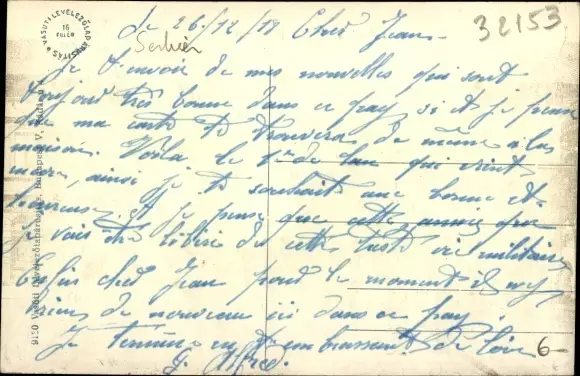 VASUTI LEVELEZŐLAP ÁRUSITÁS
16
FILLÉR
32153
le 26/12/18 Cher Jean
Serbien
Je t'envoie de mes nouvelles qui sont
toujours très bonne dans ce pay, si et je pense
que ma carte te trouvera de même à la
maison. Voila le 1er de l'an qui vient
ainsi je te souhaite une bonne et
heureuse et je pense que cette année que
je vais être libéré de cette vie militaire
Enfin cher Jean pour le moment il n'y
rien de nouveau ici dans ce pay.
Je termine en t'embrassant de loin
G. Alfred.
6-
9120 Vasúti Levelezőlapárusitás, Budapest V.